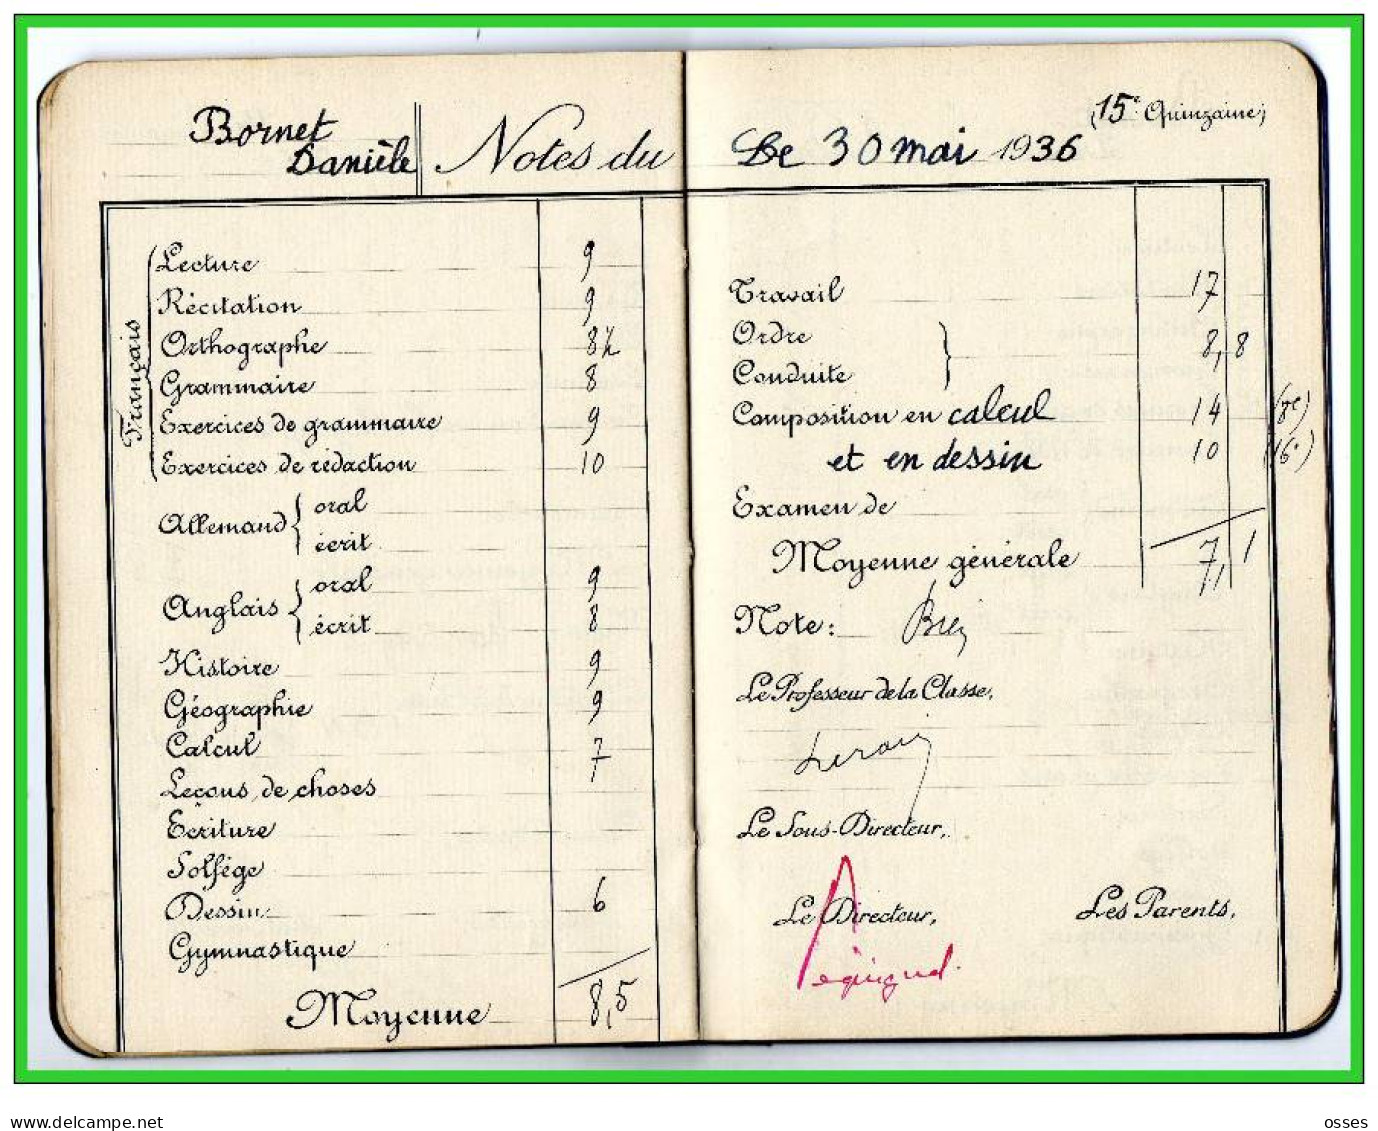 Bornet
Danièle
Notes du
Le 30 mai 1936
(15e Quinzaine)
Français
Lecture 9
Récitation 9
Orthographe 8½
Grammaire 8
Exercices de grammaire 9
Exercices de rédaction 10
Allemand
oral
écrit
Anglais
oral 9
écrit 8
Histoire 9
Géographie 9
Calcul 7
Leçons de choses
Ecriture
Solfège
Dessin 6
Gymnastique
Moyenne 8,5
Travail 17
Ordre
Conduite
8,8
Composition en calcul 14 (8e)
et en dessin 10 (16e)
Examen de
Moyenne générale 7,1
Note: Bien
Le Professeur de la Classe,
Le Sous-Directeur,
Le Directeur,
Les Parents,
delcampe.net
osses